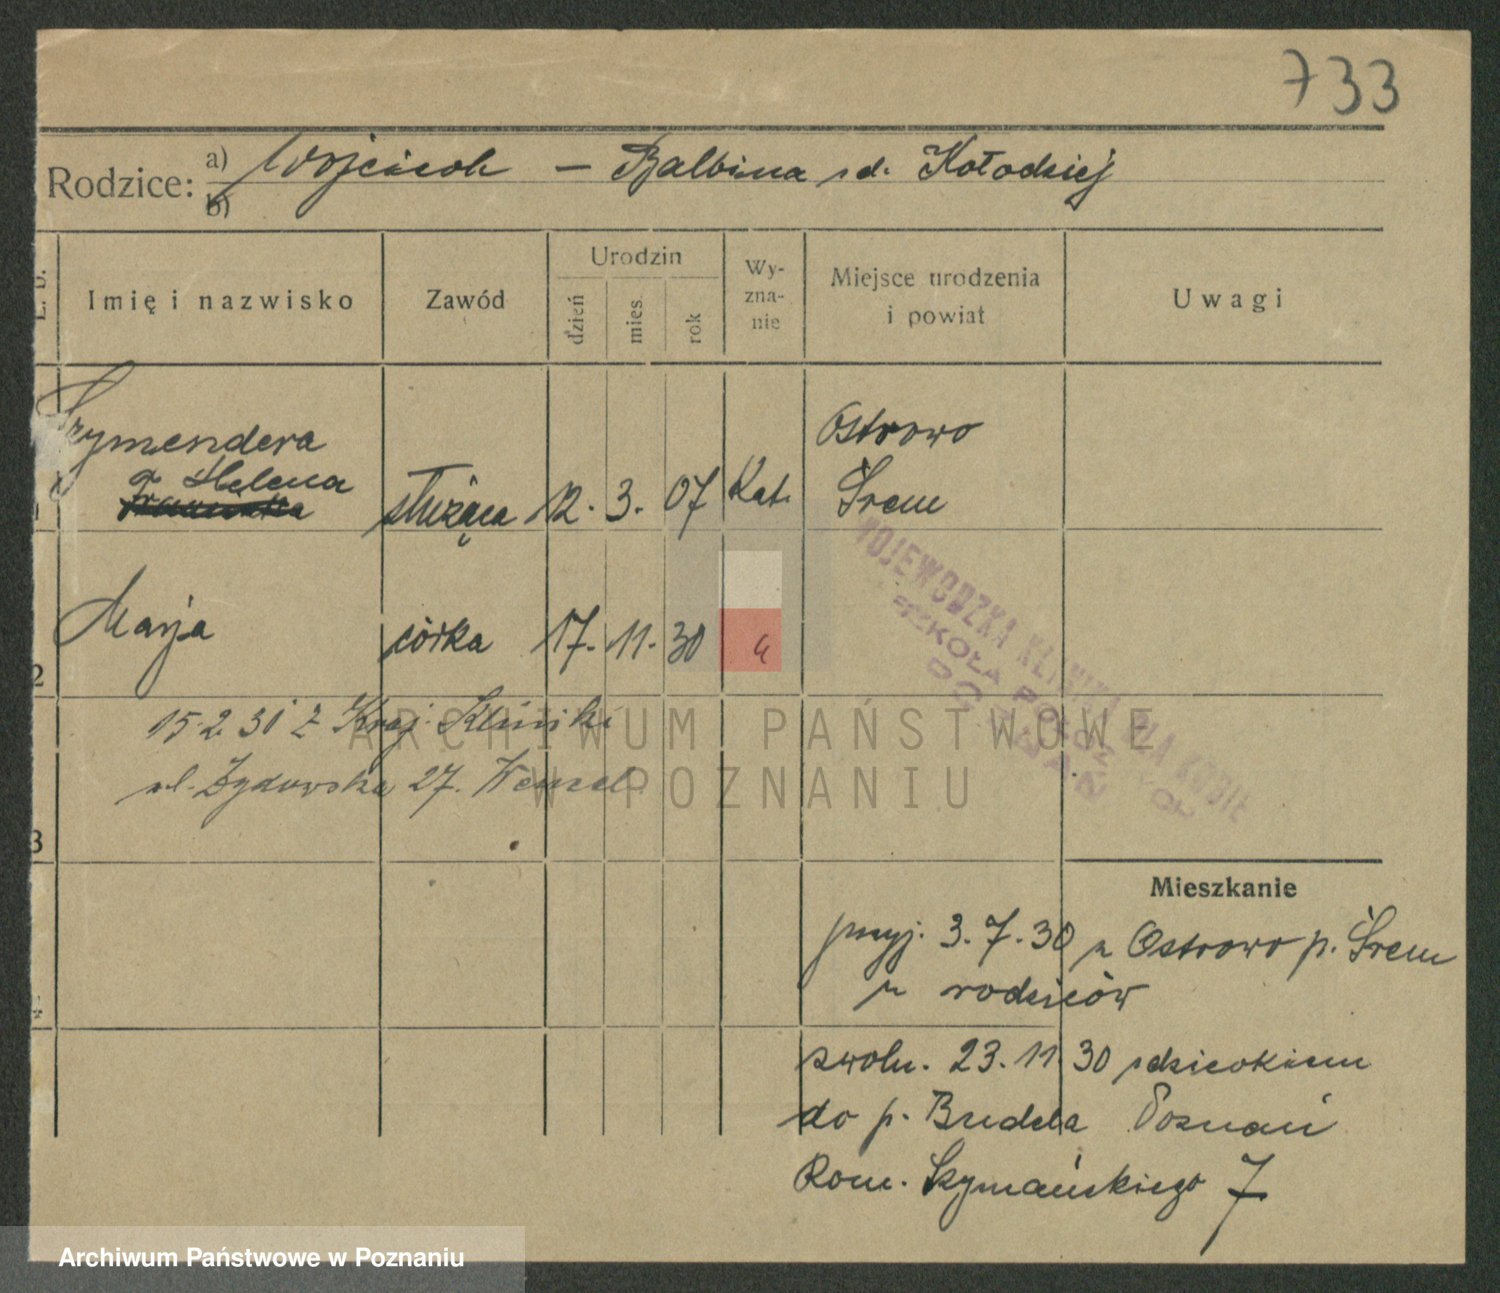 733
Rodzice: a) Wojciech — Balbina zd. Kołodziej
b)
L. B.
Imię i nazwisko
Zawód
Urodzin
dzień
mies.
rok
Wy-
zna-
nie
Miejsce urodzenia
i powiat
Uwagi
Szymendera
Helena
służąca 12. 3. 07 Kat.
Ostrowo
Śrem
2 Marja córka 17. 11. 30 "
WOJEWÓDZKA KLINIKA DLA KOBIET
SZKOŁA POŁOŻNYCH
15.2.31 z Kraj. Kliniki
ul. Żydowska 27.
3
ARCHIWUM PAŃSTWOWE
W POZNANIU
Mieszkanie
4
przyj. 3.7.30 z Ostrowo p. Śrem
z rodziców
zwoln. 23.11.30 z dzieckiem
do p. Budela Poznań
Rom. Szymańskiego 7
Archiwum Państwowe w Poznaniu